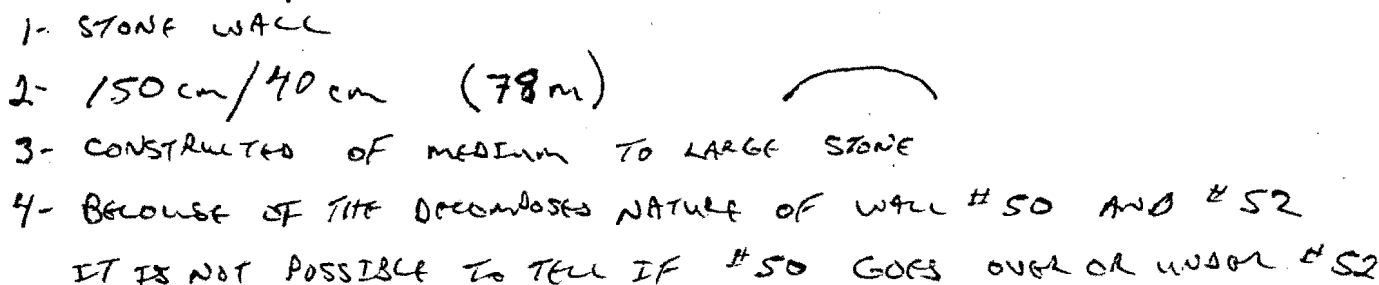 1- STONE WALL
2- 150 cm/40 cm (78 m)
3- CONSTRUCTED OF MEDIUM TO LARGE STONE
4- BECOUSE OF THE DECOMPOSED NATURE OF WALL #50 AND #52
IT IS NOT POSSIBLE TO TELL IF #50 GOES OVER OR UNDER #52